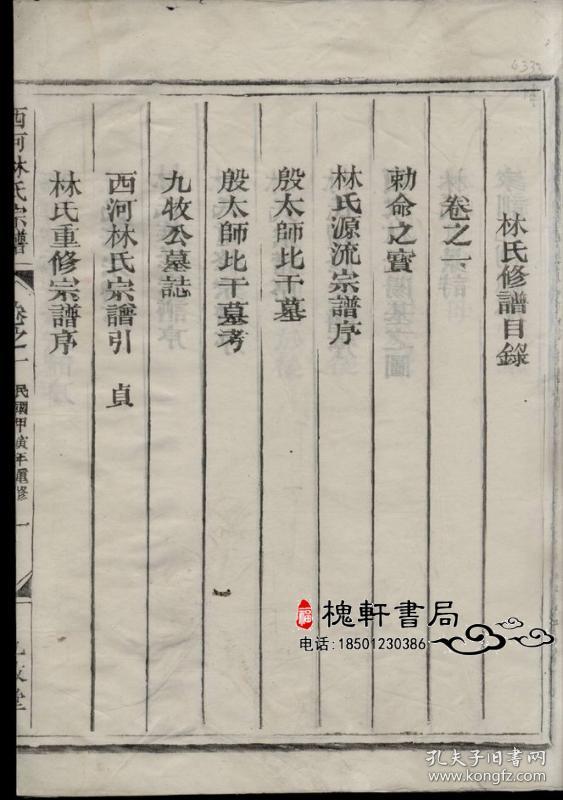 林氏修譜目錄
卷之一
勅命之寳
林氏源流宗譜序
殷太師比干墓
殷太師比干墓考
九牧公墓誌
西河林氏宗譜引 貞
林氏重修宗譜序
西河林氏宗譜 卷之一 民國甲寅年重修 一
槐軒書局
电话:18501230386
孔夫子旧书网
www.kongfz.com